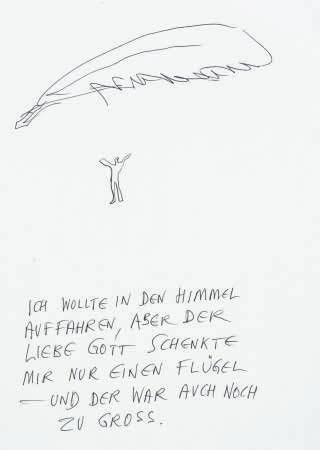 ICH WOLLTE IN DEN HIMMEL
AUFFAHREN, ABER DER
LIEBE GOTT SCHENKTE
MIR NUR EINEN FLÜGEL
— UND DER WAR AUCH NOCH
ZU GROSS.